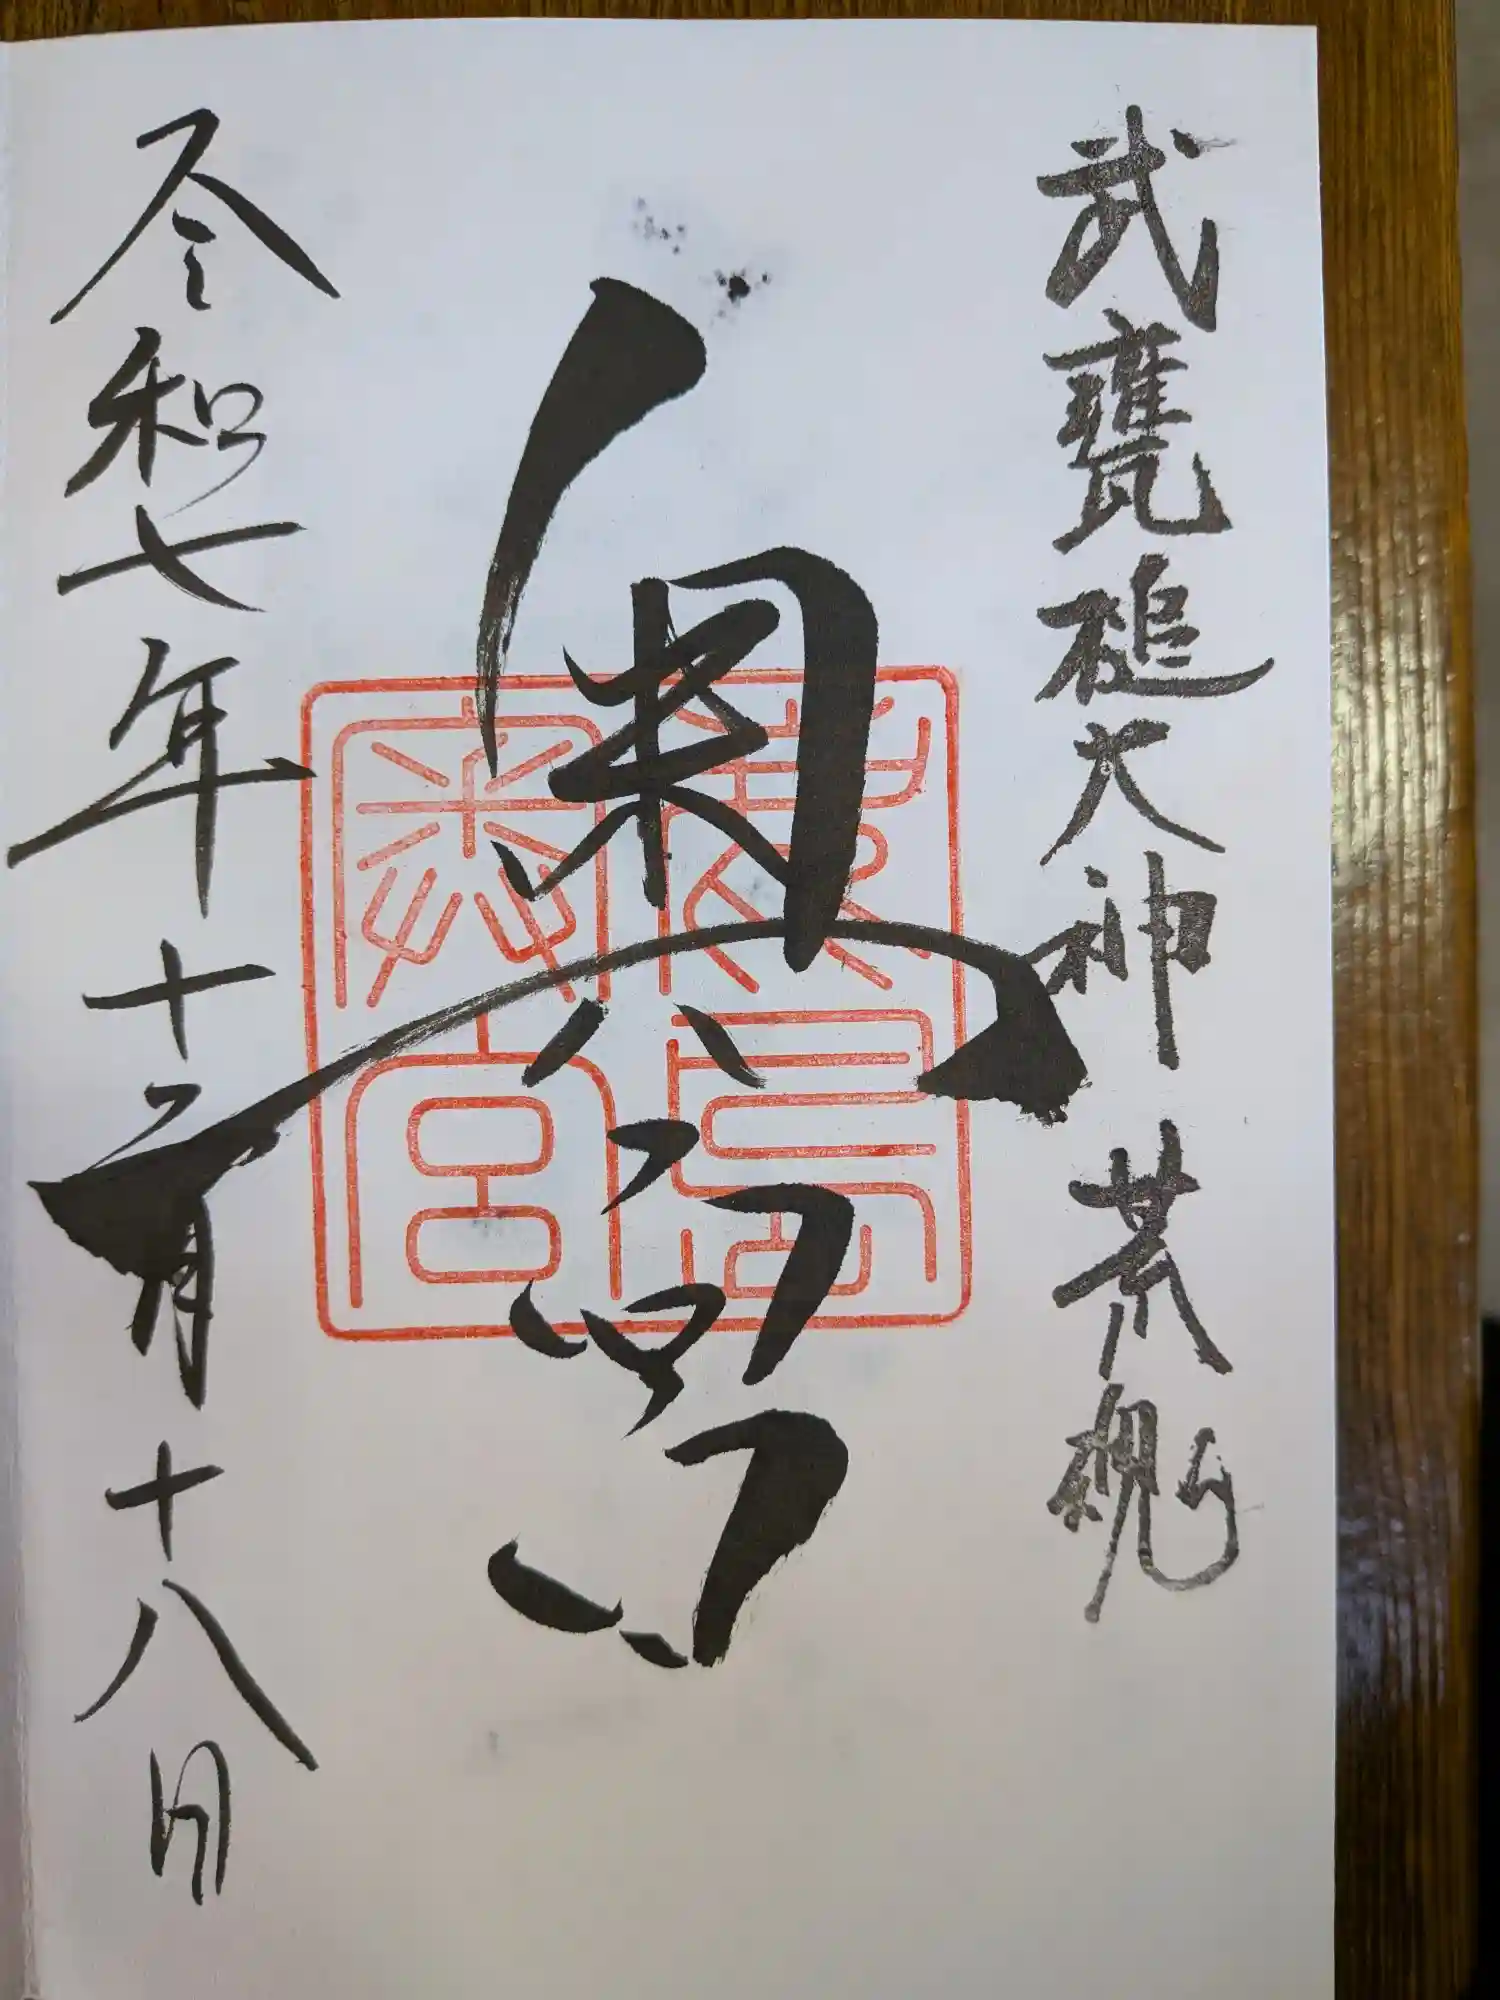 武甕槌大神 荒魂
奥宮
鹿島神宮
令和七年十二月十八日